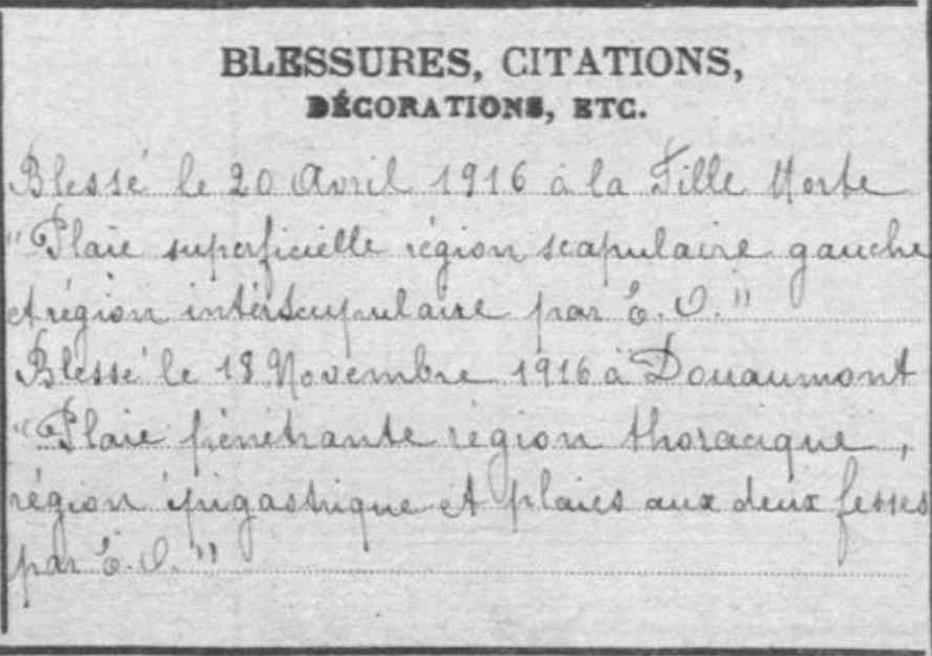 BLESSURES, CITATIONS,
DÉCORATIONS, ETC.
Blessé le 20 Avril 1916 à la Fille Morte
"Plaie superficielle région scapulaire gauche
et région interscapulaire par E.O."
Blessé le 18 Novembre 1916 à Douaumont
"Plaie pénétrante région thoracique,
région épigastrique et plaies aux deux fesses
par E.O."